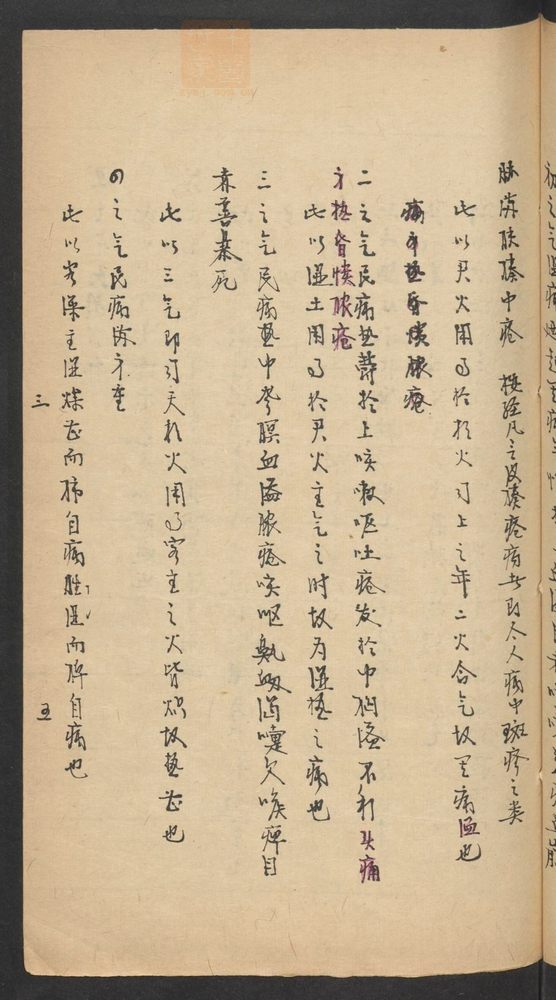 脇满肤腠中疮 按经凡言皮腠疮疡者即今人病中斑疹之类
此以君火用事於相火司上之年二火合气故其病温也
痛身热昏愦脓疮
二之气民病热鬱於上咳嗽呕吐疮发於中胸嗌不利头痛
身热昏愦脓疮
此以湿土用事於君火主气之时故为湿热之病也
三之气民病热中聋瞑血溢脓疮咳呕鼽衄渴嚏欠喉痹目
赤善暴死
此以三气即司天相火用事客主之火皆炽故热甚也
四之气民病满身重
此以客燥主湿燥甚而肺自病胜湿而脾自病也
三
五